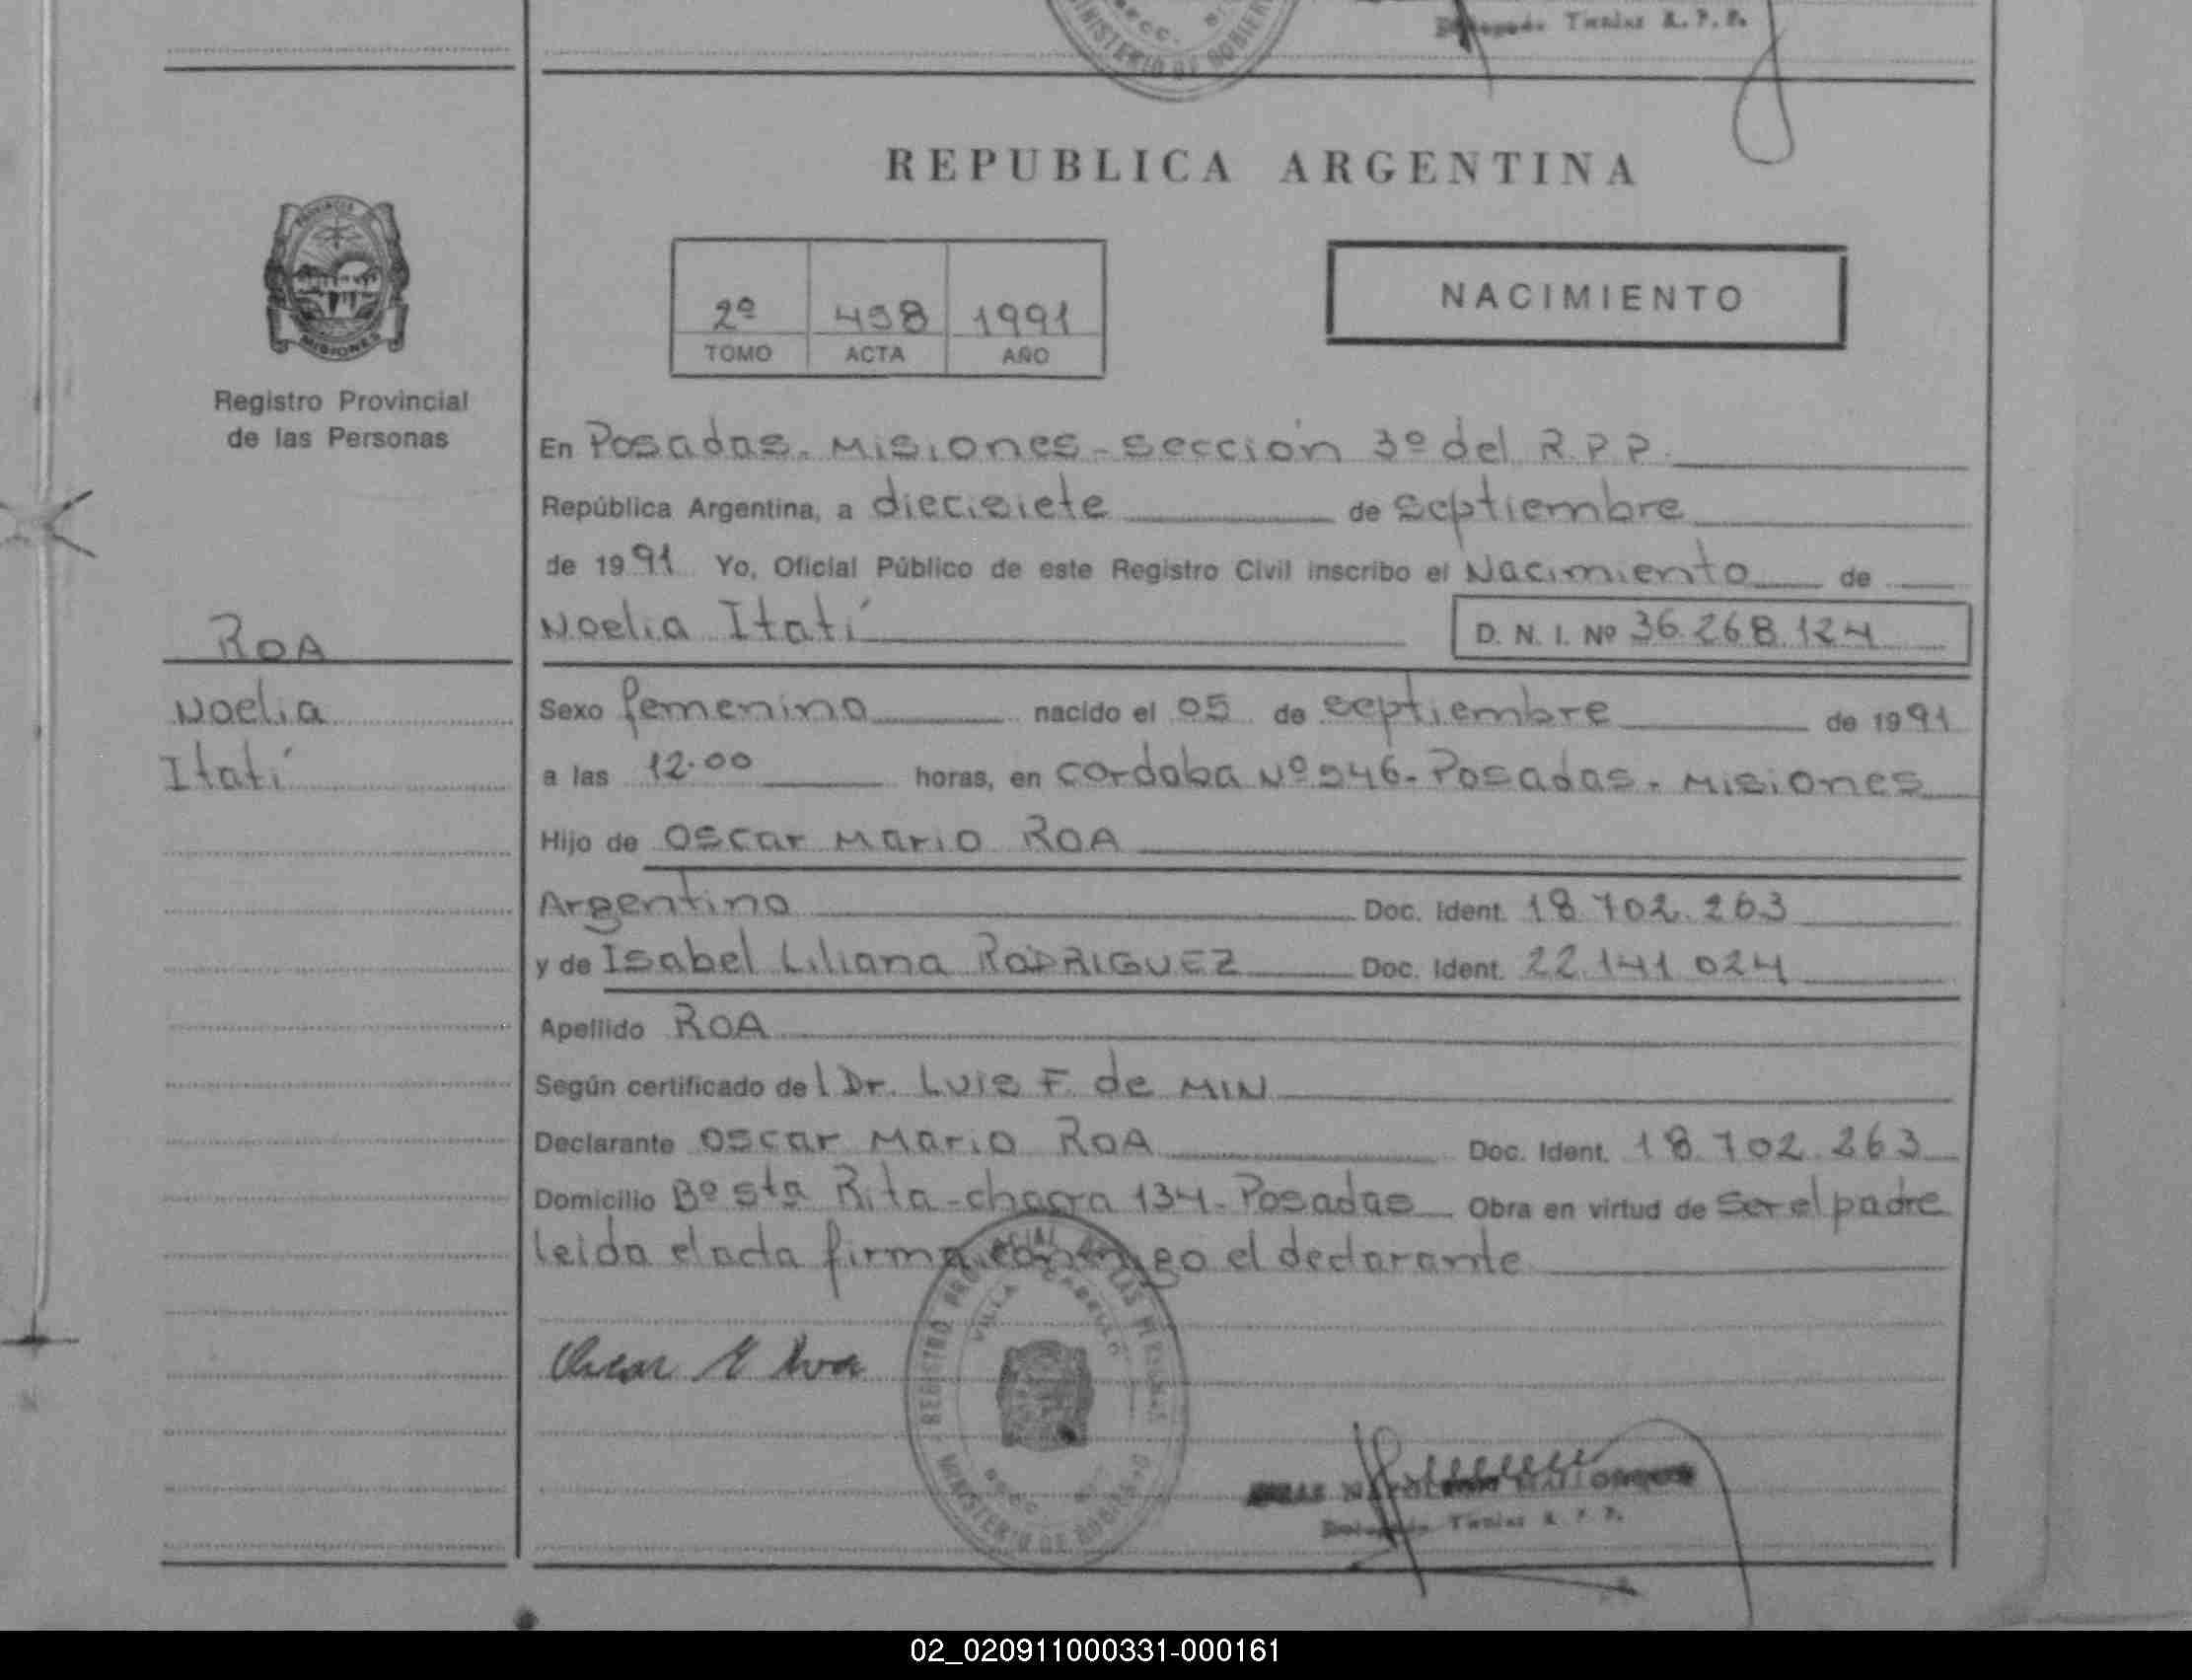 Delegado Titular R. P. P.
MINISTERIO DE GOBIERNO
REPUBLICA ARGENTINA
PROVINCIA DE
MISIONES
Registro Provincial
de las Personas
2º 498 1991
TOMO ACTA AÑO
NACIMIENTO
En Posadas. Misiones-sección 3º del R.P.P.
República Argentina, a diecisiete de septiembre
de 1991 Yo, Oficial Público de este Registro Civil inscribo el Nacimiento de
Noelia Itatí D. N. I. Nº 36.268.124
ROA
Noelia
Itatí
Sexo femenino nacido el 05 de septiembre de 1991
a las 12.00 horas, en cordoba Nº 946. Posadas. Misiones
Hijo de Oscar Mario ROA
Argentino Doc. Ident. 18.702.263
y de Isabel Liliana RODRIGUEZ Doc. Ident. 22.141.024
Apellido ROA
Según certificado del Dr. Luis F. de MIN
Declarante Oscar Mario ROA Doc. Ident. 18.702.263
Domicilio Bº Sta Rita-chacra 134. Posadas Obra en virtud de ser el padre
leida el acta firma conmigo el declarante
REGISTRO PROVINCIAL DE LAS PERSONAS
VILLA CABELLO
MINISTERIO DE GOBIERNO
Oscar M Roa
Delegado Titular R. P. P.
02_020911000331-000161